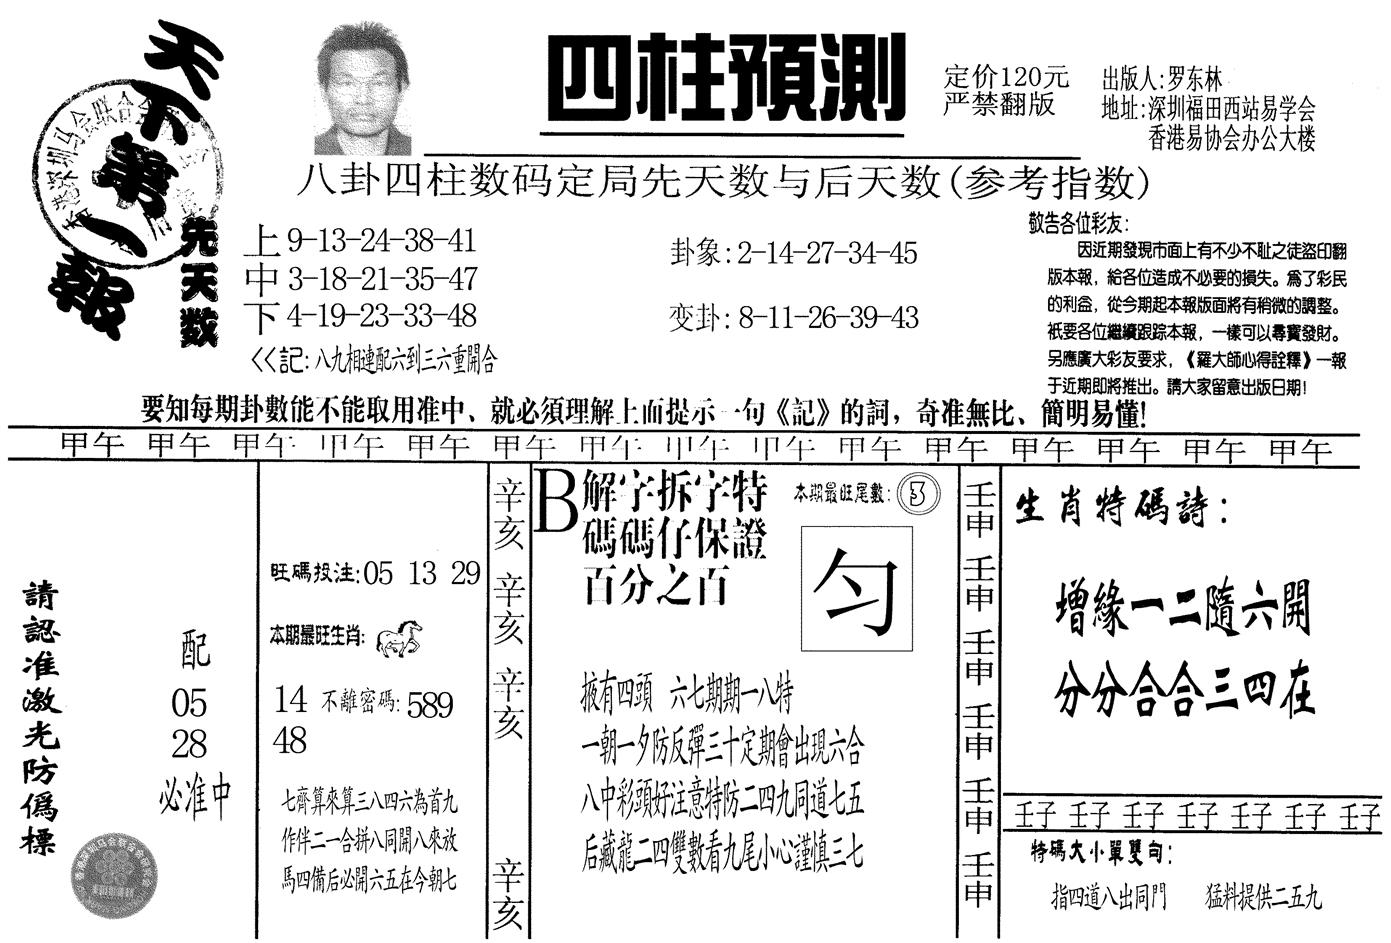 天下第一報
四柱預測
定价120元
严禁翻版
出版人:罗东林
地址:深圳福田西站易学会
香港易协会办公大楼
八卦四柱数码定局先天数与后天数(参考指数)
先天数
上 9-13-24-38-41
中 3-18-21-35-47
下 4-19-23-33-48
<<記: 八九相連配六到三六重開合
卦象: 2-14-27-34-45
变卦: 8-11-26-39-43
敬告各位彩友:
因近期發現市面上有不少不耻之徒盗印翻
版本報，給各位造成不必要的損失。爲了彩民
的利益，從今期起本報版面將有稍微的調整。
衹要各位繼續跟踪本報，一樣可以尋寶發財。
另應廣大彩友要求，《羅大師心得詮釋》一報
于近期即將推出。請大家留意出版日期!
要知每期卦數能不能取用准中、就必須理解上面提示一句《記》的詞，奇准無比、簡明易懂!
甲午 甲午 甲午 甲午 甲午 甲午 甲午 甲午 甲午 甲午 甲午 甲午 甲午 甲午 甲午
請認准激光防僞標
配
05
28
必准中
旺碼投注:05 13 29
本期最旺生肖:
14 不離密碼: 589
48
七齊算來算三八四六為首九
作伴二一合拼八同開八來放
馬四備后必開六五在今朝七
辛亥 辛亥 辛亥 辛亥
B 解字拆字特
碼碼仔保證
百分之百
本期最旺尾數: 3
匀
掖有四頭 六七期期一八特
一朝一夕防反彈三十定期會出現六合
八中彩頭好注意特防二四九同道七五
后藏龍二四雙數看九尾小心謹慎三七
壬申 壬申 壬申 壬申 壬申 壬申
生肖特碼詩:
增緣一二隨六開
分分合合三四在
壬子 壬子 壬子 壬子 壬子 壬子 壬子
特碼大小單雙句:
指四道八出同門 猛料提供二五九